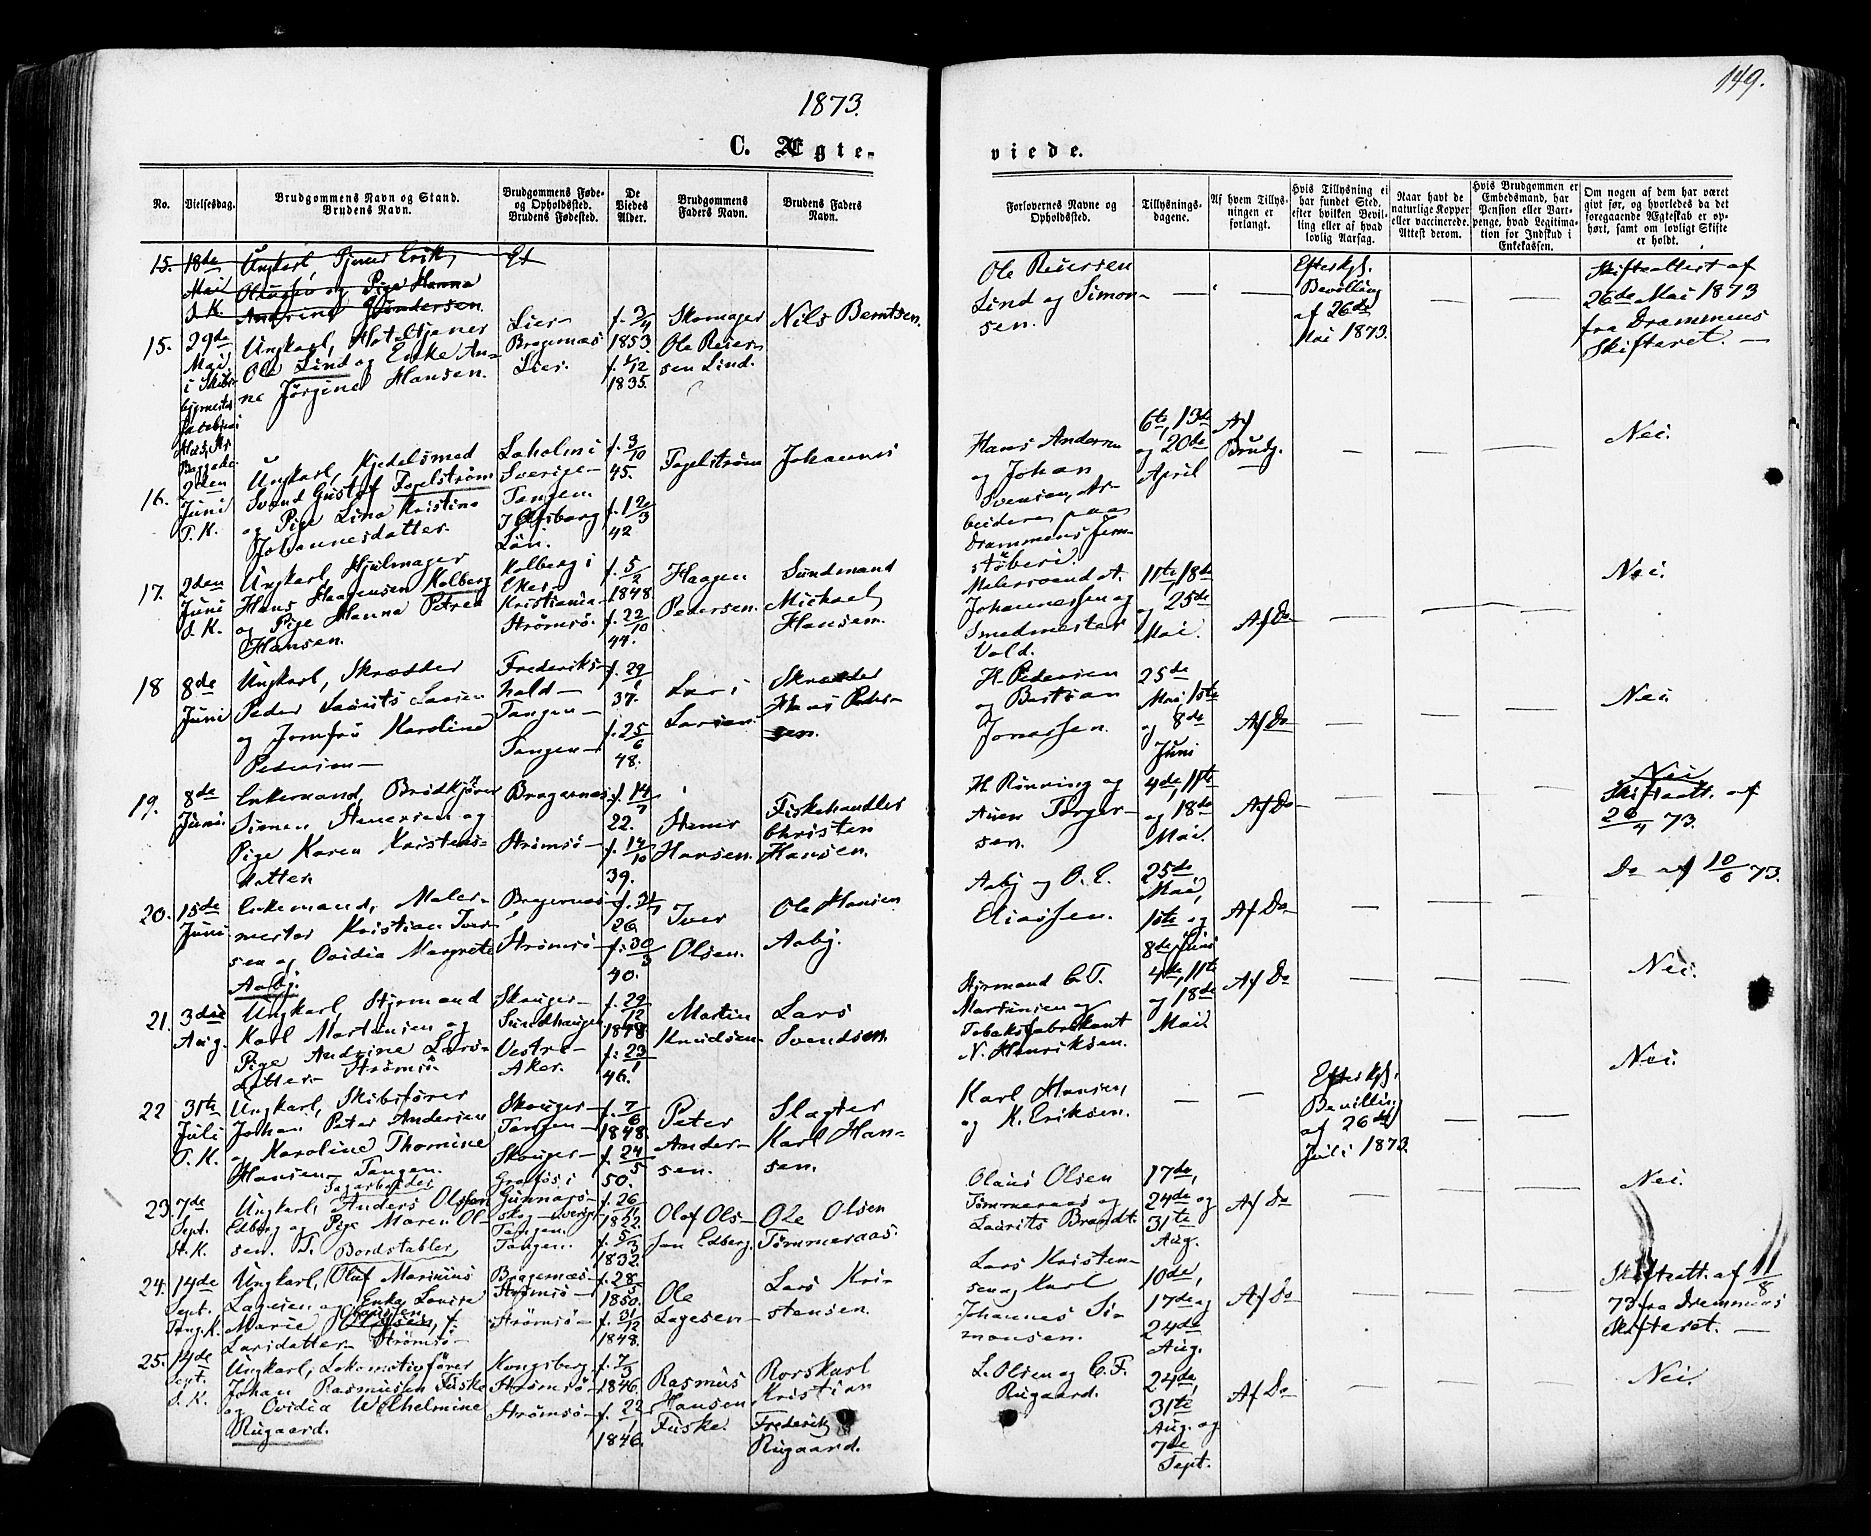 1873.
149.
C. Ægte-
viede.
No.
Vielsesdag.
Brudgommens Navn og Stand.
Brudens Navn.
Brudgommens Føde-
og Opholdsted.
Brudens Fødested.
De
Viedes
Alder.
Brudgommens
Faders Navn.
Brudens Faders
Navn.
Forlovernes Navne og
Opholdsted.
Tillysnings-
dagene.
Af hvem Tillys-
ningen er
forlangt.
Hvis Tillysning ei
har fundet Sted,
efter hvilken Bevil-
ling eller af hvad
lovlig Aarsag.
Naar havt de
naturlige Kopper
eller vaccinerede.
Attest derom.
Hvis Brudgommen er
Embedsmand, har
Pension eller Vart-
penge, hvad Legitima-
tion for Indskud i
Enkekassen.
Om nogen af dem har været
givt før, og hvorledes da det
foregaaende Ægteskab er op-
hørt, samt om lovligt Skifte
er holdt.
15. 18de
Mai
S. K.
Ungkarl, Tjener Erik
og Pige Hanna
Andrine Gundersen
15. 29de
Mai
i
Ungkarl, Hoteltjener
Ole Lind og Enke An-
ne Jørgine Hansen.
Lier-
Bragernæs
Lier.
f. 3/4
1853.
f. 1/12
1835.
Skomager
Ole Reier-
sen Lind.
Nils Berntsen.
Ole Reiersen
Lind og Simon-
sen.
Efter Kgl.
Bevilling
af 26de
Mai 1873.
Skifteattest af
26de Mai 1873
fra Drammens
Skifteret.
16. 2den
Juni
T. K.
Ungkarl, Kjedelsmed
Svend Gustaf Fogelstrøm
og Pige Lina Kristina
Johannesdatter.
Laholm i
Sverige-
Tangen
Elfsborg
Län.
f. 3/10
45.
f. 12/3
42
Fogelstrøm
Johannes
Hans Andersen
og Johan
Svensen, Ar-
beidere paa
Drammens Jern-
støberi.
6te, 13de
og 20de
April
Af
Brudg.
Nei.
17. 2den
Juni
S. K.
Ungkarl, Hjulmager
Hans Haagensen Kolberg
og Pige Hanna Petrea
Hansen.
Kolberg i
Eker-
Kristiania-
Strømsø.
f. 5/2
1848
f. 22/10
44.
Haagen
Pedersen.
Sundmand
Michael
Hansen.
Malersvend A.
Johannessen og
Smedmester
Vold.
11te, 18de
og 25de
Mai.
Af Do
Nei.
18 8de
Juni
Ungkarl, Skrædder
Peder Laurits Larsen
og Jomfru Karoline
Pedersen
Frederiks-
hald-
Tangen-
Tangen-
f. 29/1
37.
f. 25/6
48.
Lars
Larsen.
Skrædder
Hans Peder-
sen.
H. Pedersen
og Bastian
Jonassen.
25de
Mai, 1ste
og 8de
Juni
Af Do
Nei
19. 8de
Juni.
Enkemand, Brødkjører
Simen Stenersen og
Pige Karen Kristens-
datter
Bragernæs
Strømsø
f. 14/7
22.
f. 14/10
39.
Stener
Hansen.
Fiskehandler
Christen
Hansen.
H. Rönning og
Auen Torger-
sen.
4de, 11te
og 18de
Mai.
Af Do
Nei
Skifteatt. af
26/4 73.
20. 15de
Juni
Enkemand, Maler-
mester Kristian Iver-
sen og Ovidia Margrete
Aaby.
Bragernæs
Strømsø
26
f. 30/3
40.
Iver
Olsen.
Ole Hansen
Aaby.
Aaby og O. E.
Eliassen.
25de
Mai,
1ste og
8de Juni
Af Do
Do af 10/6 73.
21. 3die
Aug.
Ungkarl, Styrmand
Karl Martinsen og
Pige Andrine Lars-
datter- Strømsø
Skouger-
Sundhaugen
Vestre-
Aker.
f. 29/12
1848
f. 23/1
46.
Martin
Knudsen
Lars
Svendsen.
Styrmand C. T.
Martinsen og
Tobaksfabrikant
N. Henriksen.
4de, 11te
og 18de
Mai.
Af Do
Nei.
22 31te
Juli
T. K.
Ungkarl, Skibsfører
Johan Peter Andersen
og Karoline Thomine
Hansen Tangen.
Skouger-
Tangen-
Skouger-
f. 7/6
1848.
f. 24/5
50.
Peter
Ander-
sen.
Slagter
Karl Han-
sen.
Karl Hansen,
og K. Eriksen.
Efter Kgl.
Bevilling
af 26de
Juli 1873.
Nei.
23. 7de
Sept.
St. K.
Sagarbeider
Ungkarl, Anders Olsson
Edberg og Pige Maren Ol-
sen. T.
Gunnars-
skog Sverige
Tangen.
Tangen.
f. 26/11
1852.
f. 5/3
1832.
Olof Ols-
son Edberg.
Ole Olsen
Tømmeraas.
Olaus Olsen
Tømmeraas og
Laurits Brandt.
17de,
24de og
31te
Aug.
Af Do
Nei.
24. 14de
Sept.
Tang. K.
Bordstabler
Ungkarl, Oluf Marinius
Lagesen og Enke Lovise
Marie
Larsdatter Strømsø
Bragernæs-
Strømsø
Strømsø
f. 28/5
1850.
f. 31/12
1848.
Ole
Lagesen
Lars Kri-
stensen.
Lars Kristen-
sen og Karl
Johannes Si-
monsen.
10de,
17de og
24de
Aug.
Af Do
Skifteatt. af 11/8
73 fra Drammens
Skifteret.
25. 14de
Sept.
S. K.
Ungkarl, Lokomotivfører
Johan Rasmussen Fuske
og Ovidia Wilhelmine
Rugaard.
Kongsberg.
Strømsø
Strømsø
f. 7/3
1846
f. 22/1
1846.
Rasmus
Hansen
Fuske.
Rorskarl
Kristian
Frederik
Rugaard.
L. Olsen og C. F.
Rugaard.
24de,
31te
Aug. og
7de
Sept.
Af Do
Nei.